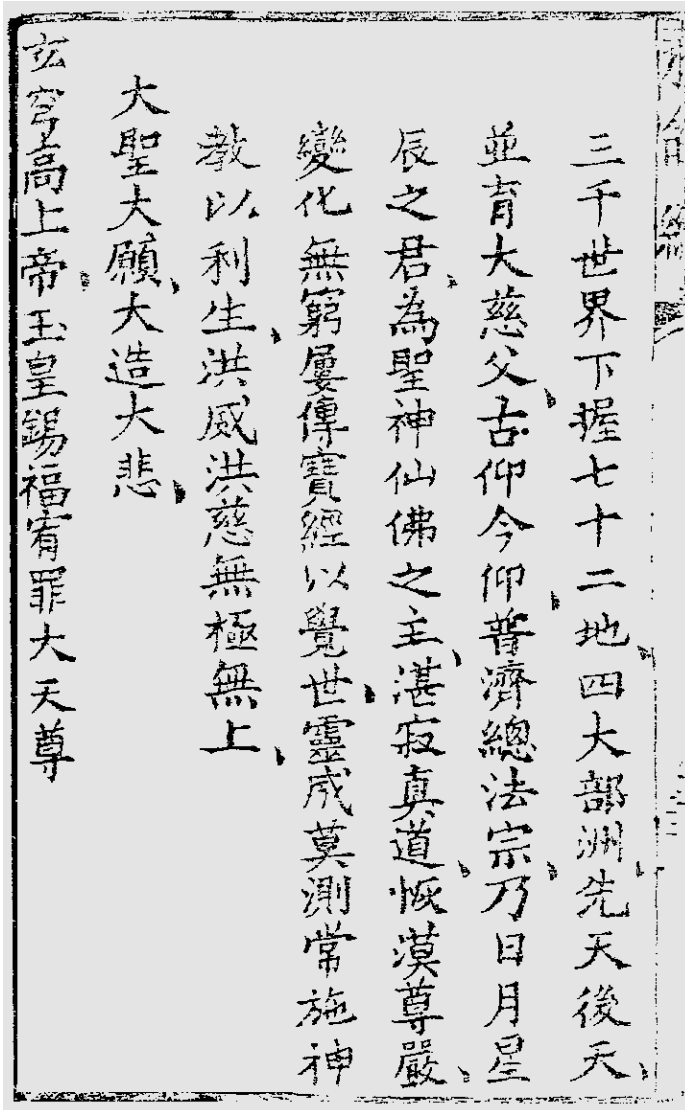 三千世界下握七十二地四大部洲先天後天
並育大慈父古仰今仰普濟總法宗乃日月星
辰之君為聖神仙佛之主湛寂真道恢漠尊嚴
變化無窮屢傳寶經以覺世靈成莫測常施神
教以利生洪威洪慈無極無上
大聖大願大造大悲
玄穹高上帝玉皇錫福宥罪大天尊